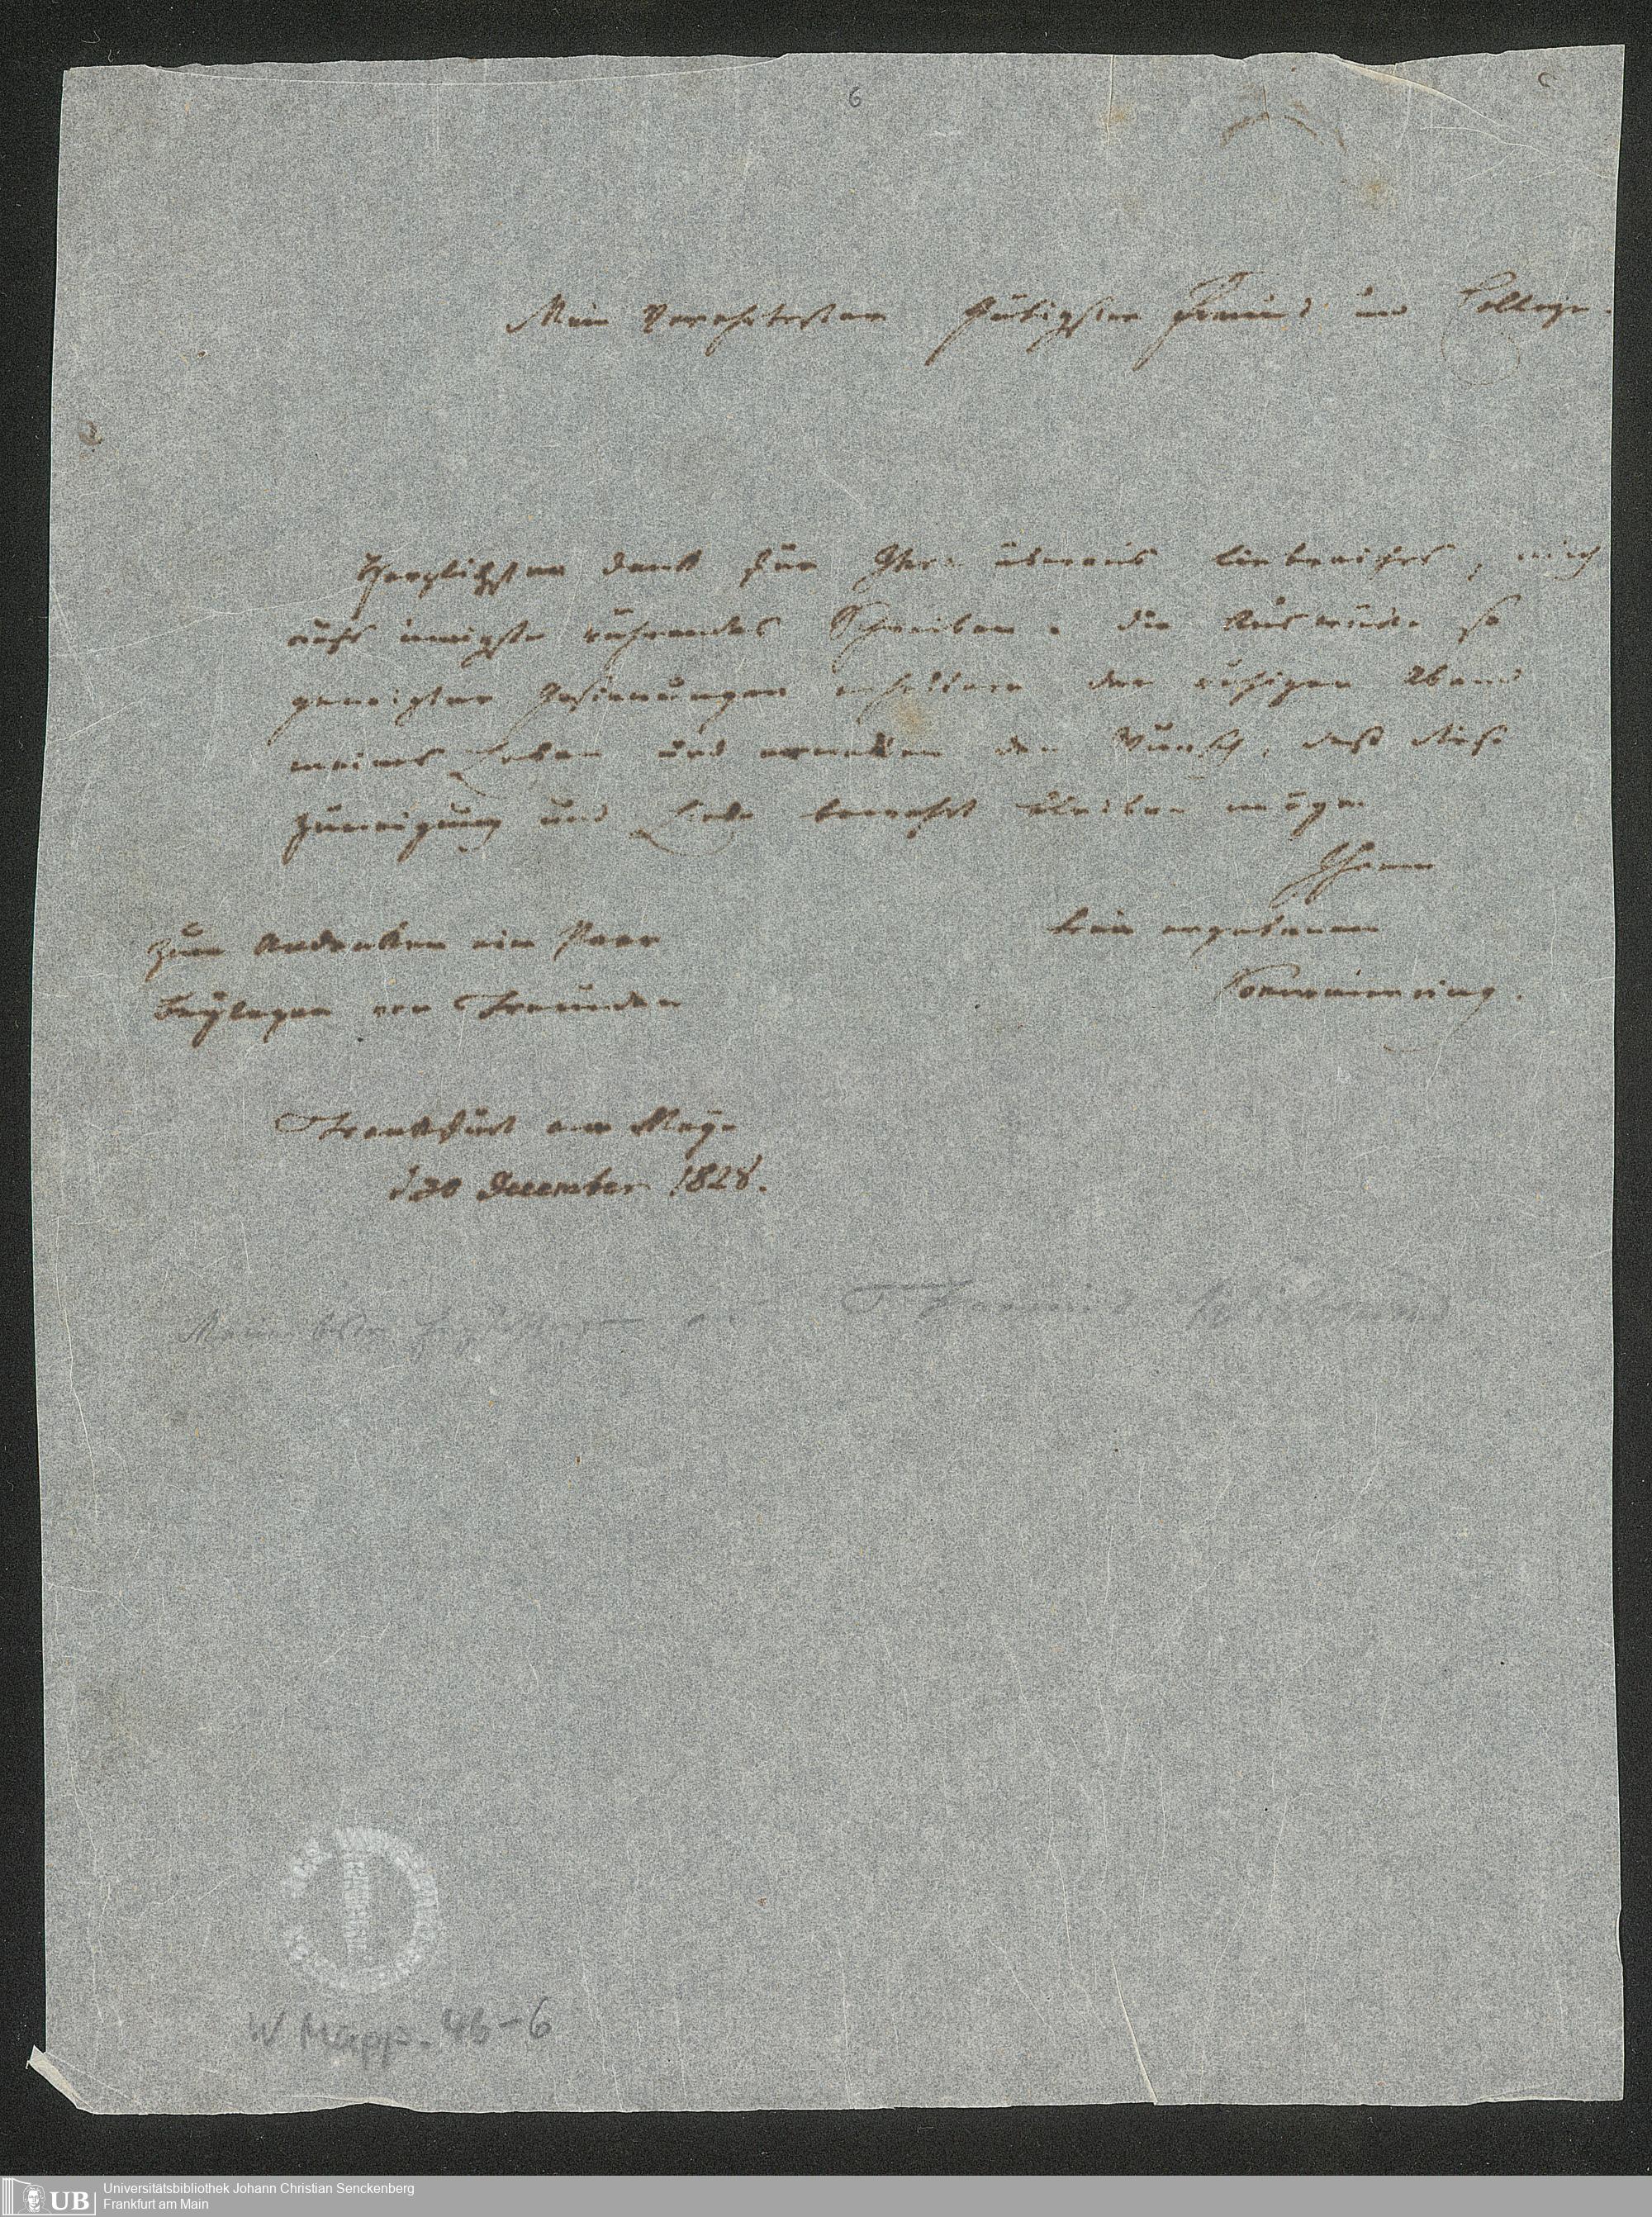 6
Mein Verehrtester Gütigster Freund und College.
Herzlichsten Dank für Ihr überaus liebreiches, mich
aufs innigste rührendes Schreiben. die Ausdrücke so
geneigter Gesinnungen erheitern den ruhigen Abend
meines Leben und den Wunsch, daß diese
Zuneigung und Liebe bewahrt bleiben möge
Ihrem
treu ergebenen
Soemmerring.
Zum Andenken ein Paar
Beylagen von Freunden
Frankfurt am Mayn
d 30 December 1828.
W Mapp. 46-6
UB
Universitätsbibliothek Johann Christian Senckenberg
Frankfurt am Main